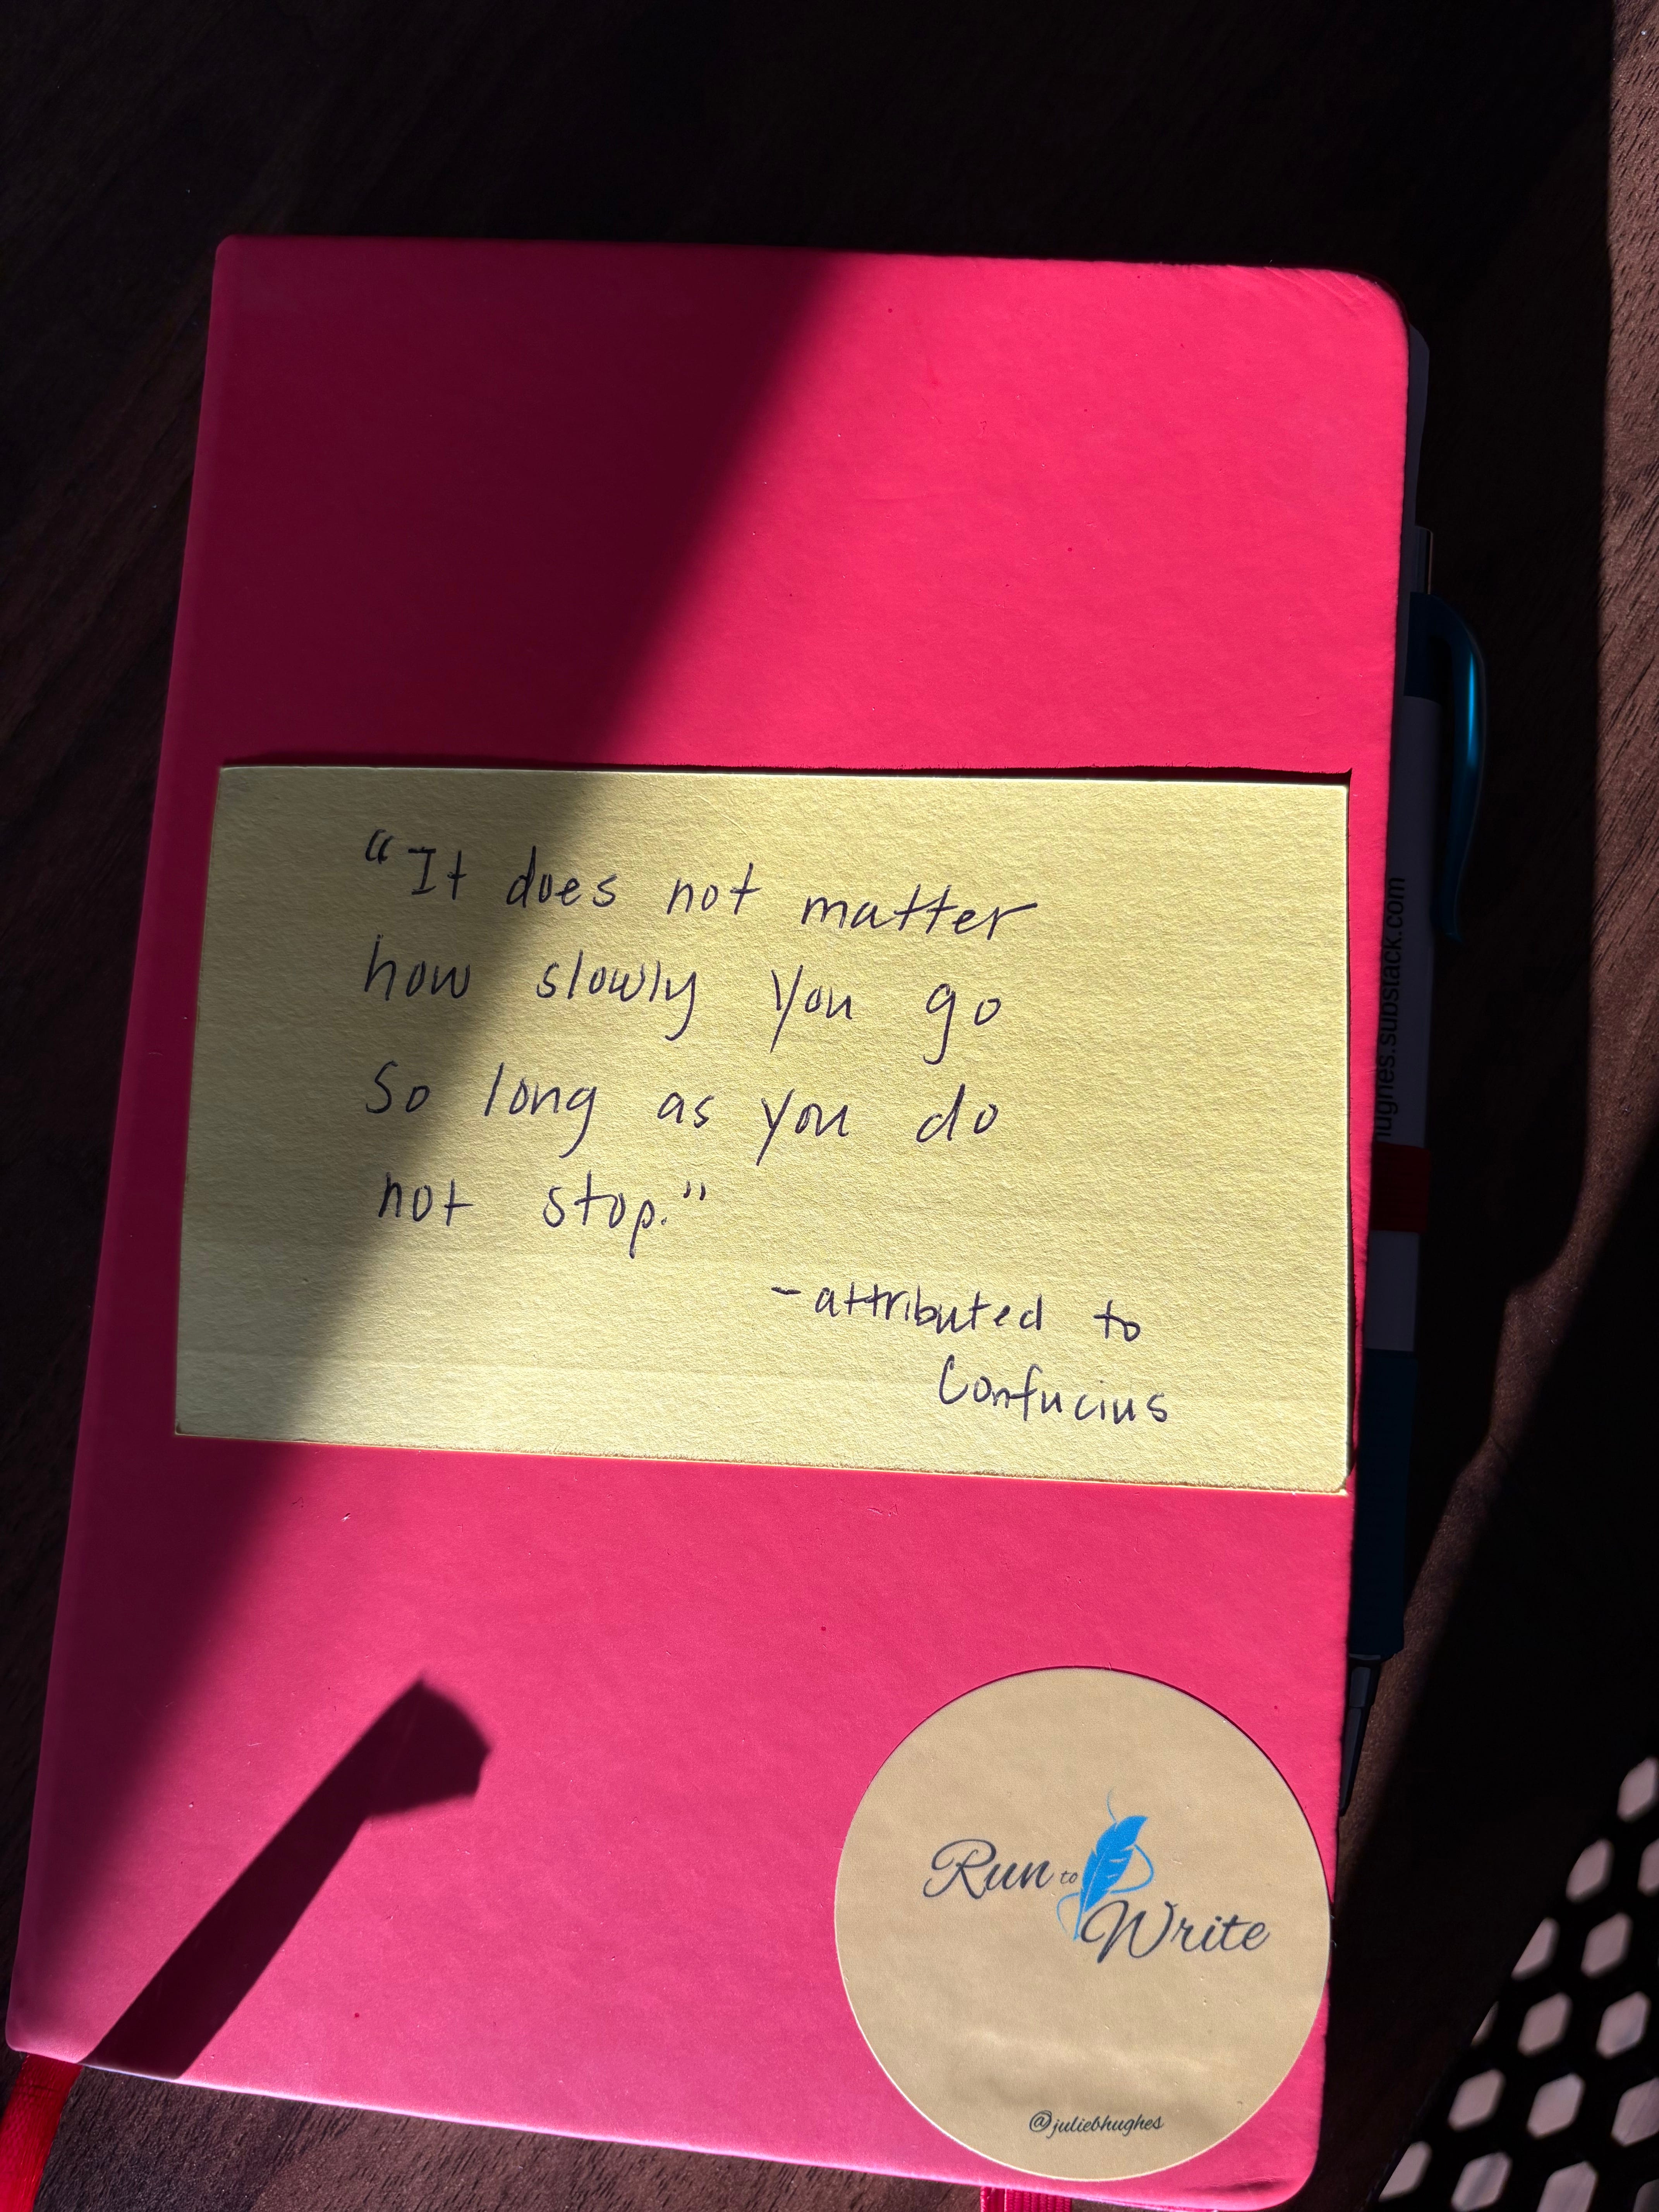 “It does not matter
how slowly you go
so long as you do
not stop.”
- attributed to
Confucius
Run to
Write
@juliebhughes
ughes.substack.com